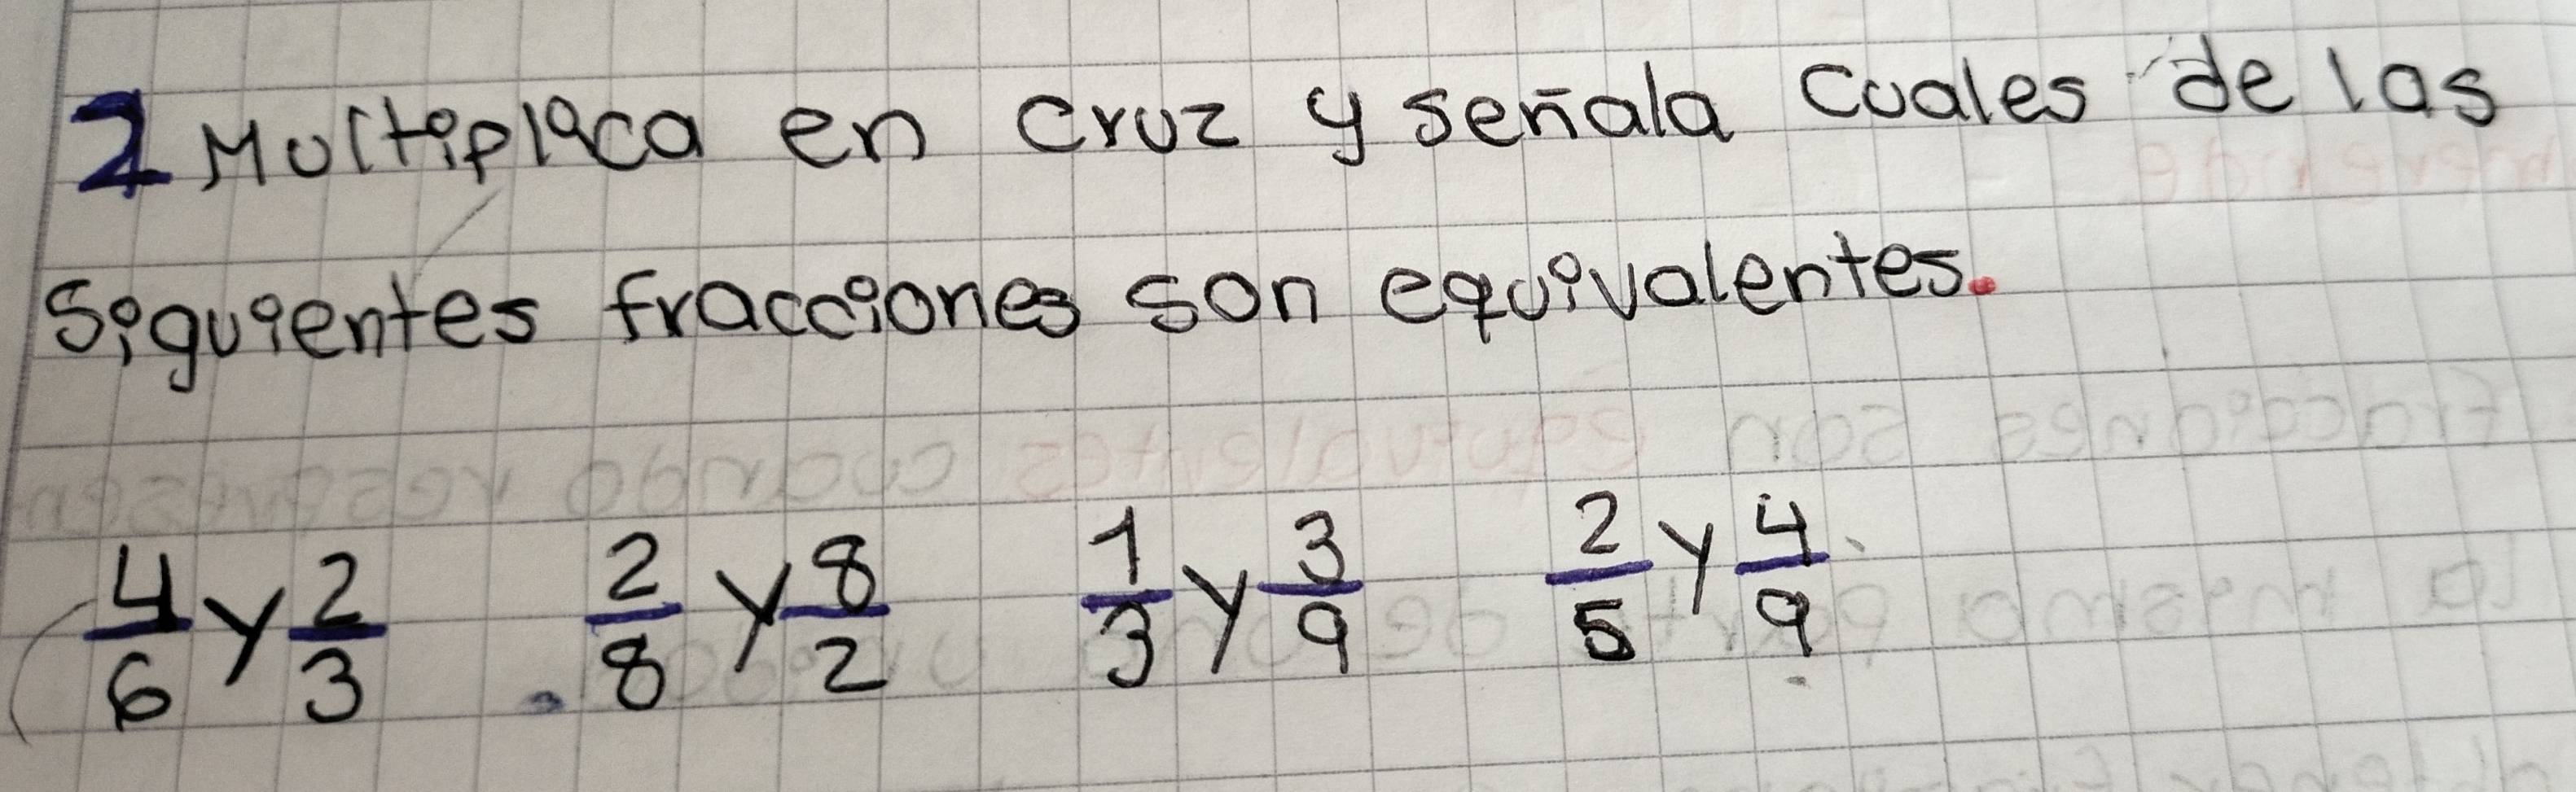 2 Multiplica en cruz y señala cuales de las
siguientes fracciones son equivalentes.
4/6 y 2/3 2/8 y 8/2 1/3 y 3/9 2/5 y 4/9